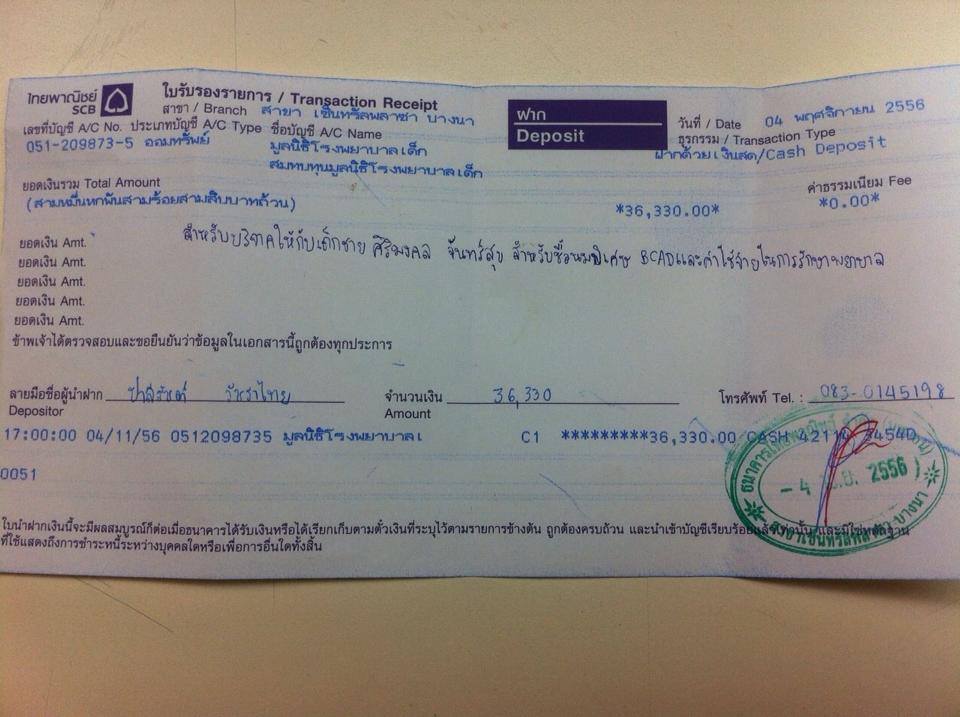 ไทยพาณิชย์
SCB
ใบรับรองรายการ / Transaction Receipt
สาขา / Branch สาขา เซ็นทรัลพลาซา บางนา
ฝาก
Deposit
วันที่ / Date 04 พฤศจิกายน 2556
ธุรกรรม / Transaction Type
ฝากด้วยเงินสด/Cash Deposit
เลขที่บัญชี A/C No. ประเภทบัญชี A/C Type ชื่อบัญชี A/C Name
051-209873-5 ออมทรัพย์ มูลนิธิโรงพยาบาลเด็ก
สมทบทุนมูลนิธิโรงพยาบาลเด็ก
ยอดเงินรวม Total Amount
ค่าธรรมเนียม Fee
(สามหมื่นหกพันสามร้อยสามสิบบาทถ้วน) *36,330.00* *0.00*
ยอดเงิน Amt. สำหรับบริจาคให้กับเด็กชาย ศิริมงคล จันทร์สุข สำหรับซื้อนมพิเศษ BCADและค่าใช้จ่ายในการรักษาพยาบาล
ยอดเงิน Amt.
ยอดเงิน Amt.
ยอดเงิน Amt.
ยอดเงิน Amt.
ข้าพเจ้าได้ตรวจสอบและขอยืนยันว่าข้อมูลในเอกสารนี้ถูกต้องทุกประการ
ลายมือชื่อผู้นำฝาก
Depositor
จำนวนเงิน 36,330
Amount
โทรศัพท์ Tel. : 083-0145198
17:00:00 04/11/56 0512098735 มูลนิธิโรงพยาบาลเ C1 *********36,330.00 CASH 42110
0051
- 4 พ.ย. 2556
ใบนำฝากเงินนี้จะมีผลสมบูรณ์ก็ต่อเมื่อธนาคารได้รับเงินหรือได้เรียกเก็บตามตั๋วเงินที่ระบุไว้ตามรายการข้างต้น ถูกต้องครบถ้วน และนำเข้าบัญชีเรียบร้อยแล้วเท่านั้น และมิใช่หลักฐาน
ที่ใช้แสดงถึงการชำระหนี้ระหว่างบุคคลใดหรือเพื่อการอื่นใดทั้งสิ้น